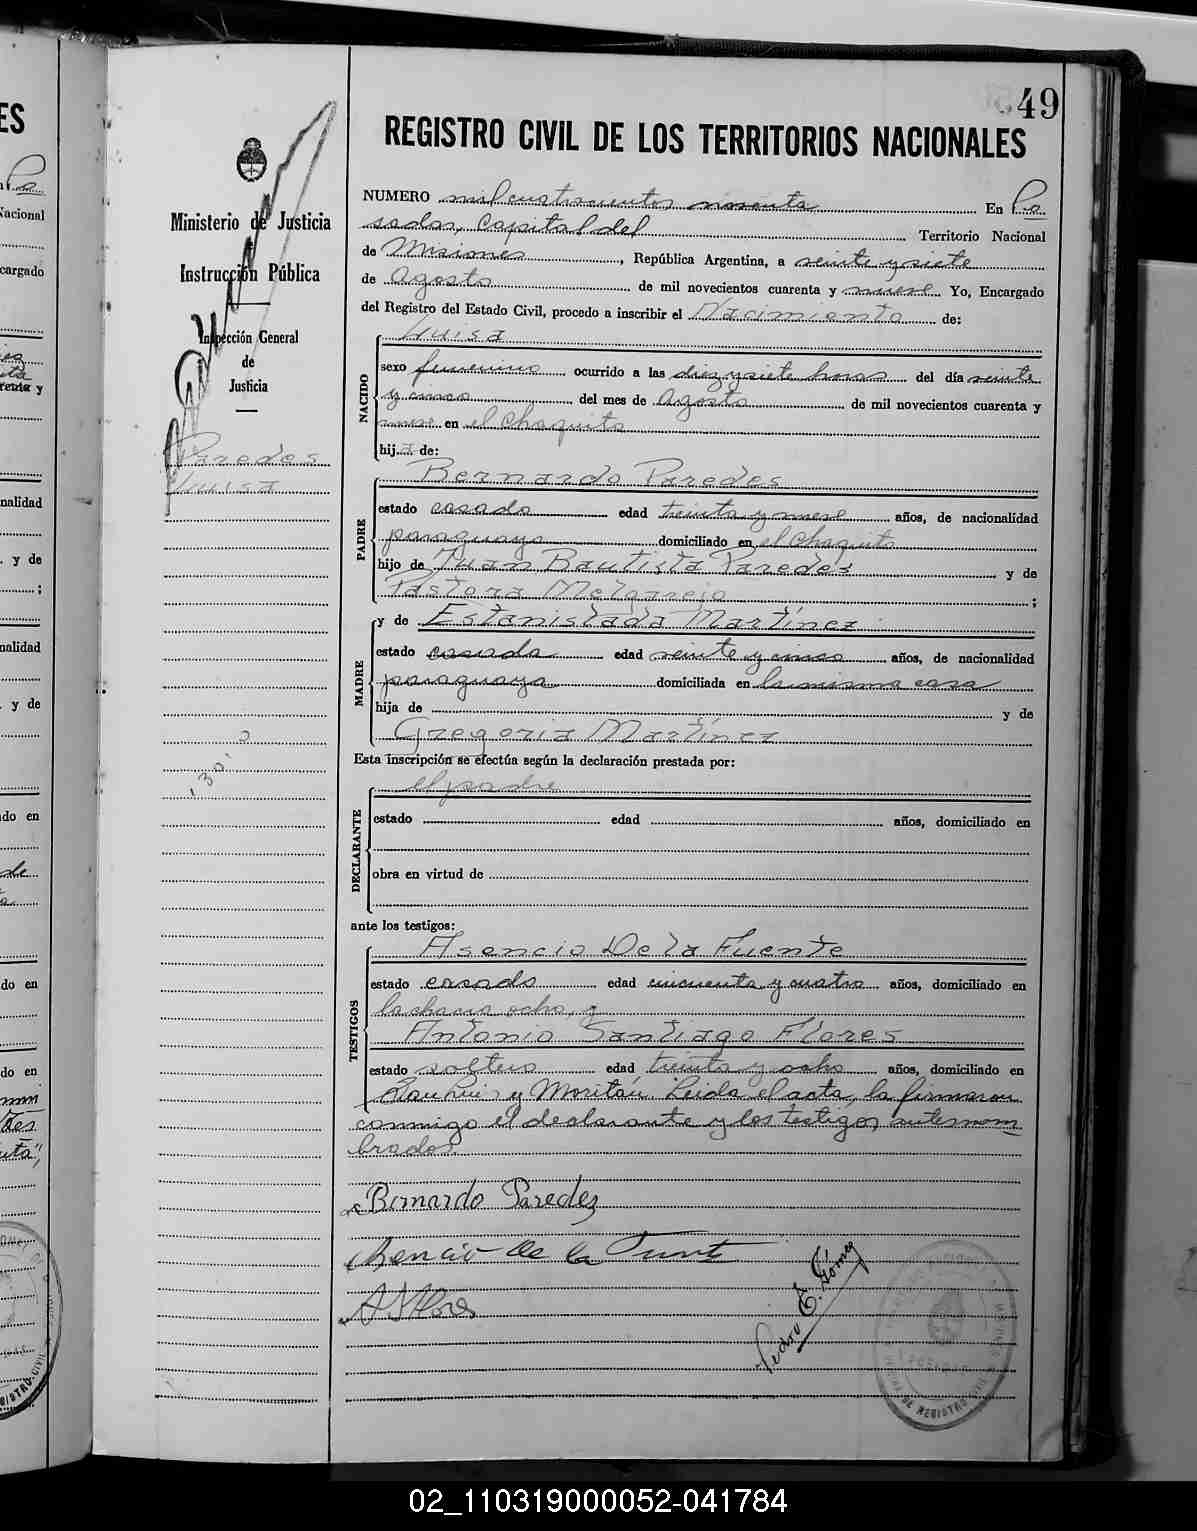 49
REGISTRO CIVIL DE LOS TERRITORIOS NACIONALES
Ministerio de Justicia
e
Instrucción Pública
Inspección General
de
Justicia
Paredes
Luisa
NUMERO mil cuatrocientos noventa En Po
sadas, Capital del Territorio Nacional
de Misiones, República Argentina, a veinte y siete
de Agosto de mil novecientos cuarenta y nueve Yo, Encargado
del Registro del Estado Civil, procedo a inscribir el Nacimiento de:
Luisa
NACIDO
sexo femenino ocurrido a las diez y siete horas del día veinte
y cinco del mes de Agosto de mil novecientos cuarenta y
nueve en el Chaquito
hija de:
Bernardo Paredes
PADRE
estado casado edad treinta y nueve años, de nacionalidad
paraguaya domiciliado en el Chaquito
hijo de Juan Bautista Paredes y de
Pastora Melgarejo ;
y de Estanislada Martínez
MADRE
estado casada edad veinte y cinco años, de nacionalidad
paraguaya domiciliada en la misma casa
hija de y de
Gregoria Martínez
Esta inscripción se efectúa según la declaración prestada por:
el padre
DECLARANTE
estado edad años, domiciliado en
obra en virtud de
ante los testigos:
Asencio De la Fuente
TESTIGOS
estado casado edad cincuenta y cuatro años, domiciliado en
la chacra ocho, y
Antonio Santiago Flores
estado soltero edad treinta y ocho años, domiciliado en
San Luis y Moritán. Leida el acta, la firmaron
conmigo el declarante y los testigos antesnom
brados.
Bernardo Paredez
Asencio de la Fuente
A S Flores
Pedro E. Gómez
02_110319000052-041784